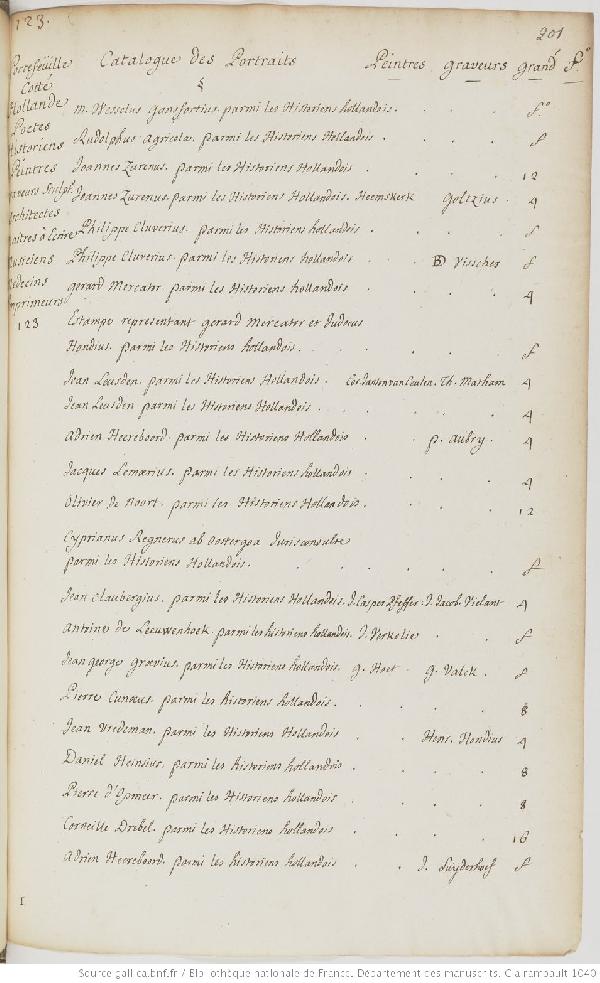 123.
201
Portefeüille Cotté Hollande Poetes Historiens Peintres graveurs Sculpt. Architectes Maitres à Ecrire Musiciens Medecins Imprimeurs 123
Catalogue des Portraits Peintres graveurs grand.r f.o
§
m. Wesselus gansfortius. parmi les Historiens hollandois. f.o
Rudolphus Agricola. parmi les Historiens Hollandois f
Joannes Zurenus. parmi les Historiens Hollandois 12
Joannes Zurenus. parmi les Historiens Hollandois. Heemskerk Goltzius. 4
Philippe Cluverius. parmi les Historiens hollandois f
Philippe Cluverius. parmi les Historiens hollandois Visscher f
gerard Mercator parmi les Historiens hollandois 4
Estampe representant gerard Mercator et Judocus
Hondius. parmi les Historiens hollandois. f
Jean Leusden. parmi les Historiens Hollandois. Th. Matham 4
Jean Leusden parmi les Historiens Hollandois. 4
Adrien Heereboord. parmi les Historiens Hollandois p. Aubry. 4
Jacques Lemærius. parmi les Historiens hollandois 4
Olivier de Noort. parmi les Historiens Hollandois. 12
Cyprianus Regnerus ab Oostergea Jurisconsulte
parmi les Historiens Hollandois. f
Jean Claubergius. parmi les Historiens Hollandois. J. Casper Pfeffer. J. Jacob. Vielant 4
Antoine de Leeuwenhoek. parmi les historiens hollandois. J. Verkolie f
Jean george Grævius. parmi les Historiens hollandois. g. Hoet. g. Valck. f
Pierre Cunæus. parmi les historiens hollandois. 8
Jean Vredeman. parmi les Historiens Hollandois Hens. Hondius 4
Daniel Heinsius. parmi les historiens hollandois 8
Pierre d'Opmeer. parmi les Historiens hollandois 8
Corneille Drebel. parmi les Historiens hollandois 16
Adrien Heereboord. parmi les historiens hollandois J. Suyderhoef f
1
Source gallica.bnf.fr / Bibliothèque nationale de France. Département des manuscrits. Clairambault 1040